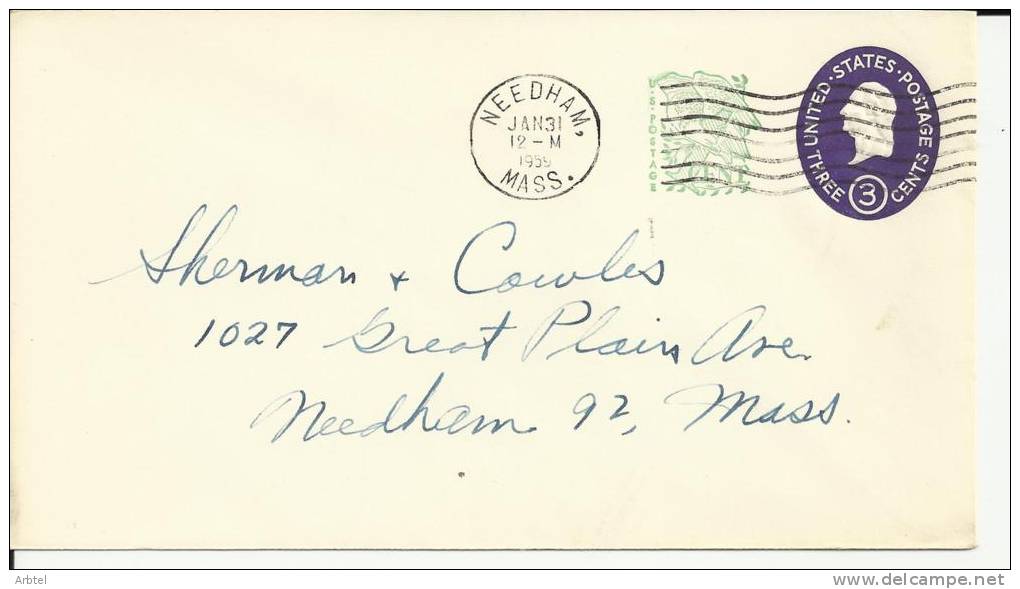 NEEDHAM,
JAN31
12-M
1959
MASS.
U.S. POSTAGE
CENT
UNITED · STATES · POSTAGE
THREE 3 CENTS
Sherman + Cowles
1027 Great Plain Ave.
Needham 92, Mass.
Arbtel
www.delcampe.net